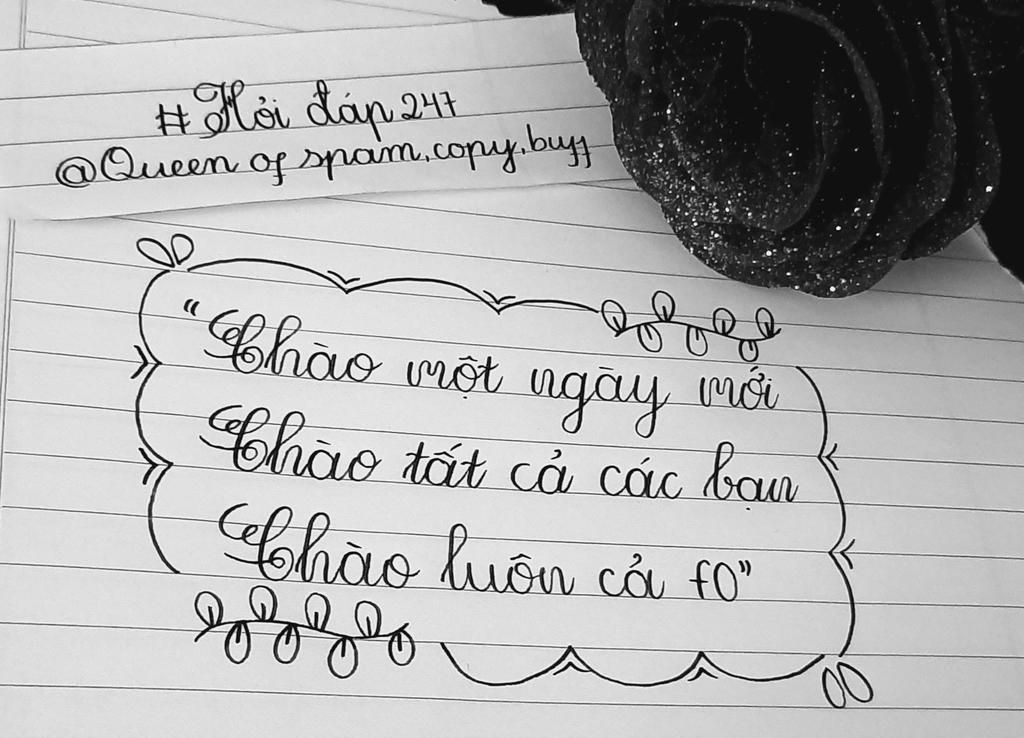 #Hỏi đáp 247
@Queen of spam,copy,buff
"Chào một ngày mới
Chào tất cả các bạn
Chào luôn cả f0"